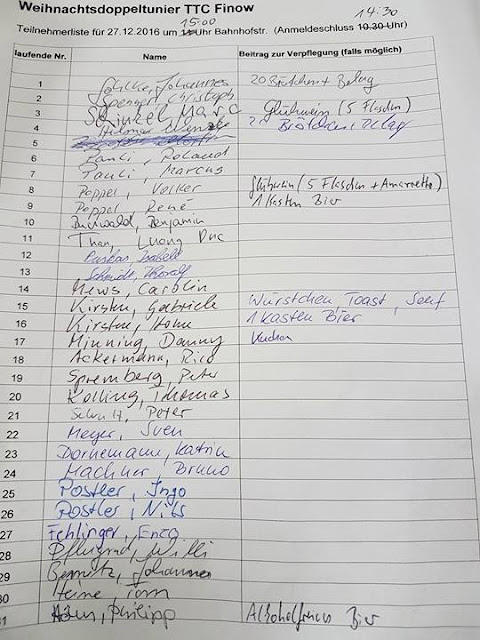 Weihnachtsdoppeltunier TTC Finow
15:00 14:30
Teilnehmerliste für 27.12.2016 um Uhr Bahnhofstr. (Anmeldeschluss 10.30 Uhr)
laufende Nr. Name Beitrag zur Verpflegung (falls möglich)
1 Johannes 20 Brötchen + Belag
2 Spengler, Christoph
3 Schinkel, Marc Glühwein (5 Flaschen)
4 Brötchen, Belag
5
6 Roland
7 Marcus
8 Poppel, Volker Glühwein (5 Flaschen + Amaretto)
9 Poppel, René 1 Kasten Bier
10 Burwald, Benjamin
11 Than, Luong Duc
12
13 Schmidt,
14 Mews, Carolin
15 Kirsten, Gabriele Würstchen Toast, Senf
16 Kirsten, 1 Kasten Bier
17 Minning, Danny Kuchen
18 Ackermann, Rico
19 Spremberg, Peter
20 Kolling, Thomas
21 Schultz, Peter
22 Meyer, Sven
23 Dornemann, Katrin
24 Machner, Bruno
25 Postler, Ingo
26 Postler, Nils
27 Echlinger, Enzo
28 Pflugrad, Willi
29 Johannes
30 Heine, Tom
31 Philipp Alkoholfreies Bier